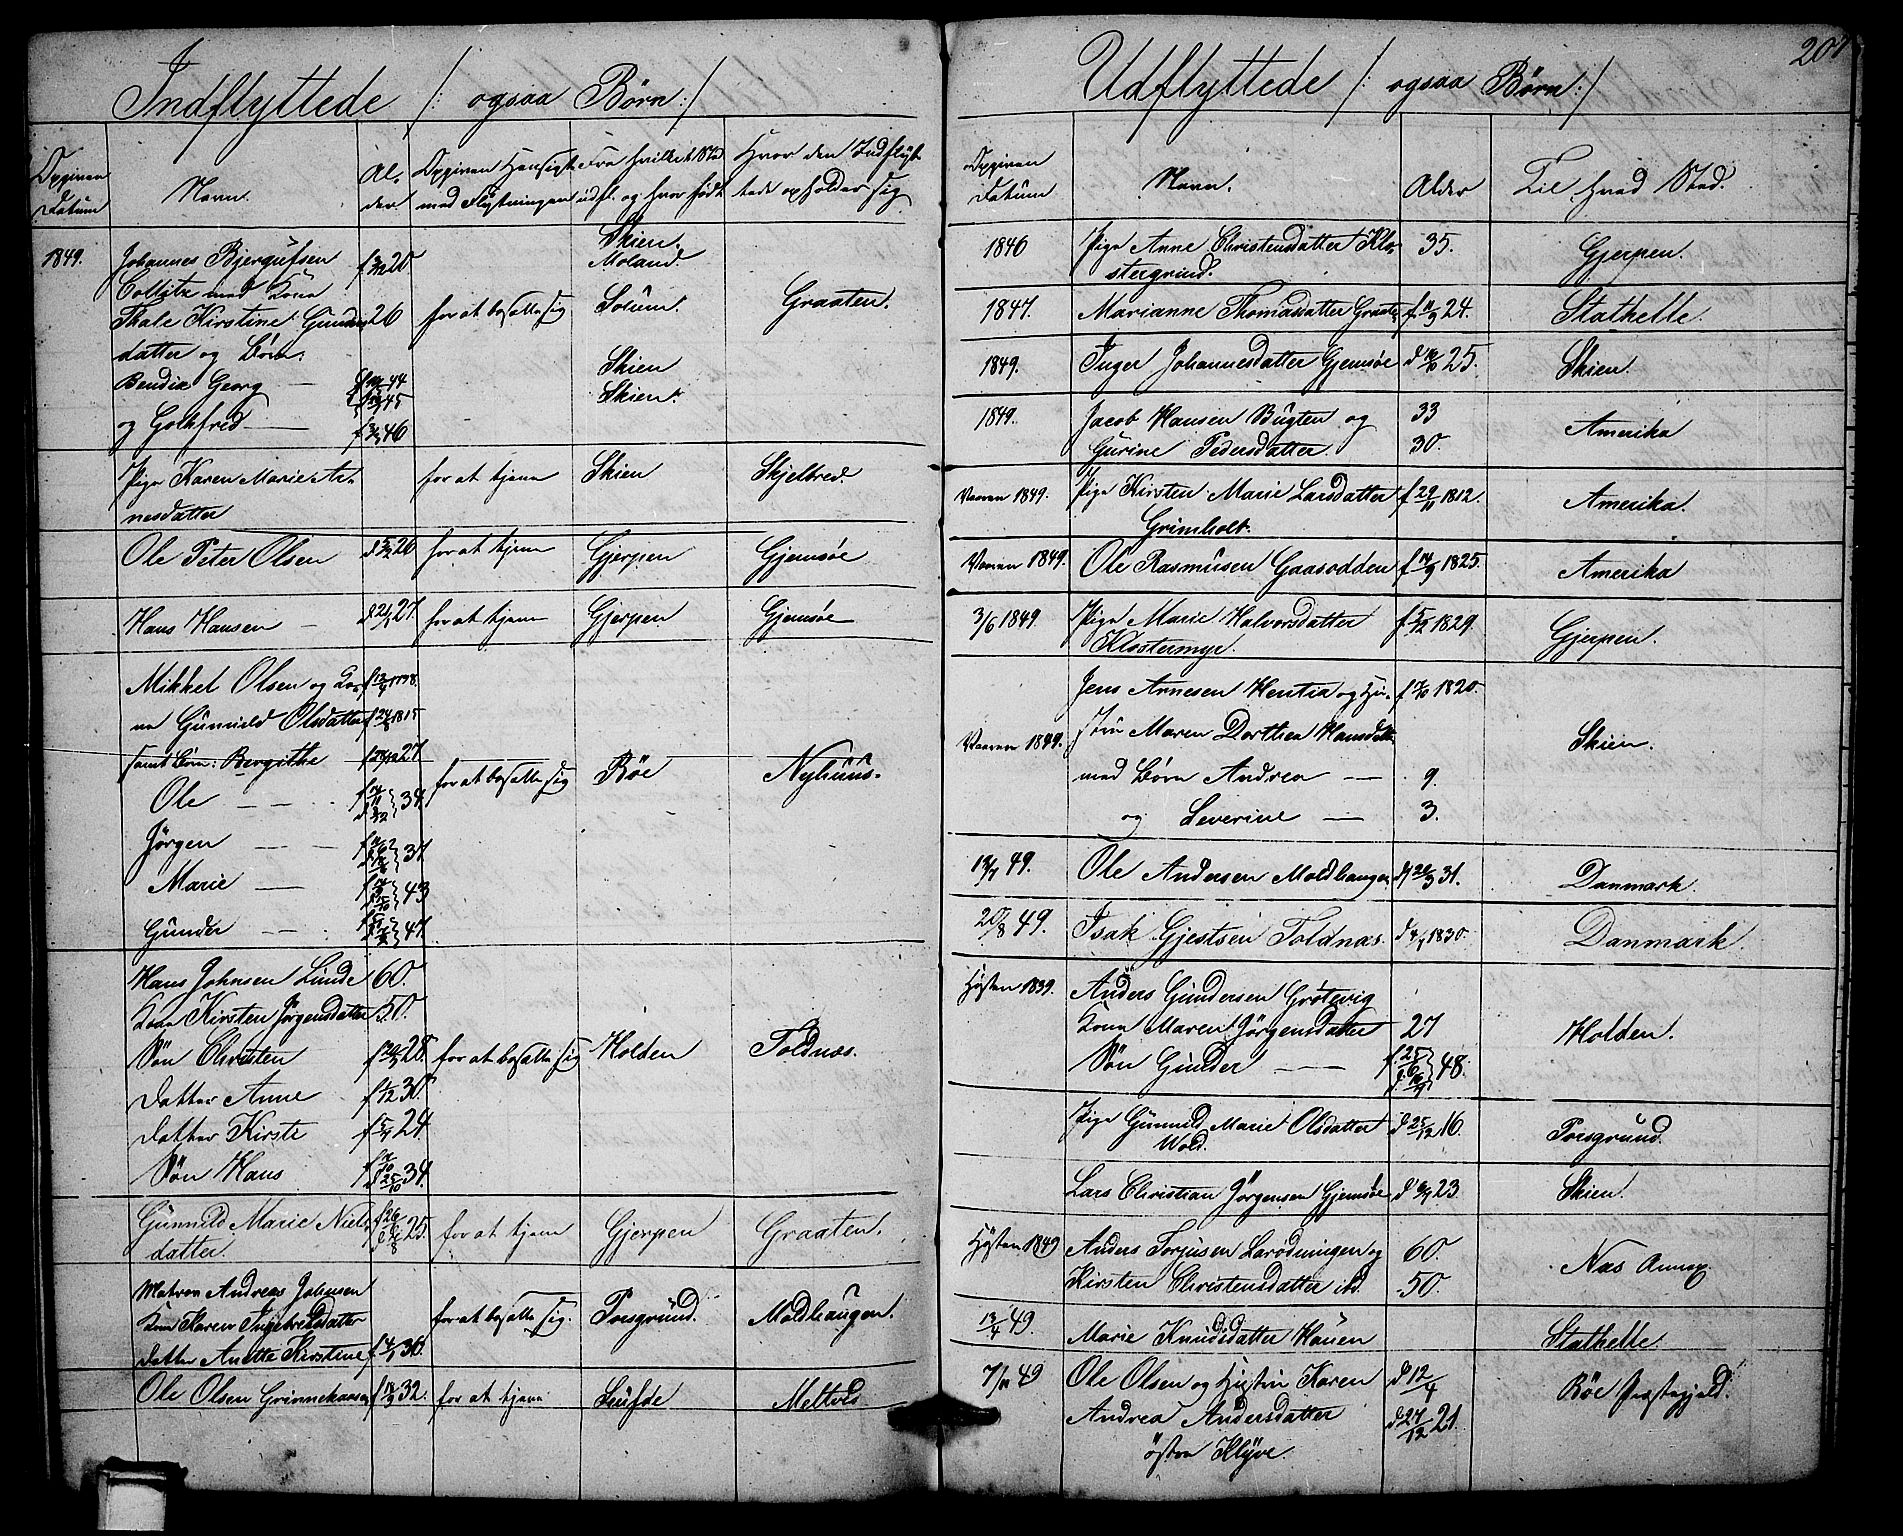 Indflyttede /: ogsaa Børn :/
Opgiven Datum
Navn.
Al-der
Opgiven Hensigt med Flytningen
Fra hvilket Sted udfl. og hvor født
Hvor den Indflyttede opholder sig
1849. Johannes Bjergulfsen 20. Skien.
Moland.
med Kone
Thale Kirstine Gunders 26 for at bosætte sig Solum. Graaten.
datter og Børn:
Bendix Georg — 44 Skien
45 Skien.
og Gothfred — 46
Pige Karen Marie Ar- for at tjene Skien Skjelbred.
nesdatter
Ole Peter Olsen 26 for at tjene Gjerpen Gjemsøe
Hans Hansen — 27. for at tjene Gjerpen Gjemsøe
Mikkel Olsen og Ko- 1798.
ne Gunnild Olsdatter f 24/5 1815
samt Børn: Bergithe 27.
for at bosætte sig Røe Nyhuus.
Ole — — 34.
Jørgen — — 37
Marie — 43
Gunder — — 47.
Hans Johnsen Lunde 60.
Kone Kirsten Jørgensdatter 50.
Søn Christen 28. for at bosætte sig Holden Toldnæs.
Datter Anne f 1/12 30.
Datter Kirsti 24.
Søn Hans 34.
Gunnild Marie Niels- 25. for at tjene Gjerpen Graaten.
datter.
Matros Andreas Johnsen
Kone Karen Ingebretsdatter for at bosætte sig. Porsgrund. Moldhaugen.
Datter Anette Kirstine 36.
Ole Olsen 32. for at tjene Meltved
Udflyttede /: ogsaa Børn :/
207
Opgiven Datum
Navn.
Alder
Til hvad Sted.
1846 Pige Anne Christensdatter Klo- 35. Gjerpen.
stergrund.
1847. Marianne Thomasdatter Graaten 24. Stathelle.
1849. Inger Johannesdatter Gjemsøe 25. Skien.
1849. Jacob Hansen Bugten og 33
Gurine Pedersdatter. 30. Amerika
Vaaren 1849. Pige Kirsten Marie Larsdatter f 29/11 1812. Amerika.
Grimholt.
Vaaren 1849. Ole Rasmusen Gaasodden f 14/9 1825. Amerika
3/6 1849. Pige Marie Halvorsdatter f 5/12 1829. Gjerpen.
Klostermyr.
Jens Arnesen Ventia og Hu- 1820.
stru Maren Dorthea Hansdatter
Vaaren 1849. Skien.
med Børn Andrea — 9.
og Severine — 3.
13/7 49. Ole Andersen Moldhaugen 31. Danmark.
20/8 49. Isak Gjestsen Toldnæs. 1830. Danmark.
Høsten 1839. Anders Gundersen Grøtevig
Kone Maren Jørgensdatter 27 Holden.
Søn Gunder — 48.
Pige Gunnild Marie Olsdatter d 25/12 16. Porsgrund.
Wold.
Lars Christian Jørgensen Gjemsøe 23. Skien.
Høsten 1849 Anders Torjusen Larødningen og 60. Næs Annex.
Kirsten Christensdatter ibd. 50.
13/4 49. Marie Knudsdatter Hauen Stathelle.
7/11 49 Ole Olsen og Hustru Karen d 12/4 Røe Præstegjeld.
Andrea Andersdatter d 27/12 21.
østre Klyve.